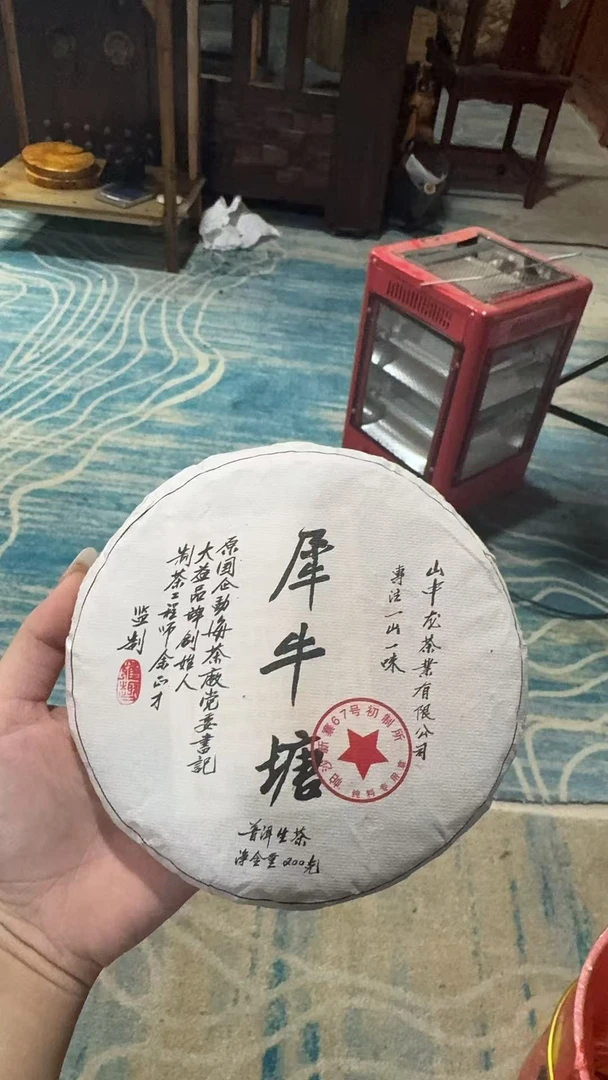 山中龙茶業有限公司
專注一山一味
犀牛塘
原国企勐海茶廠党委書記
大益品牌创始人
制茶工程师余正才
监制
新寨67号初制所
纯料专用章
普洱生茶
净含量200克